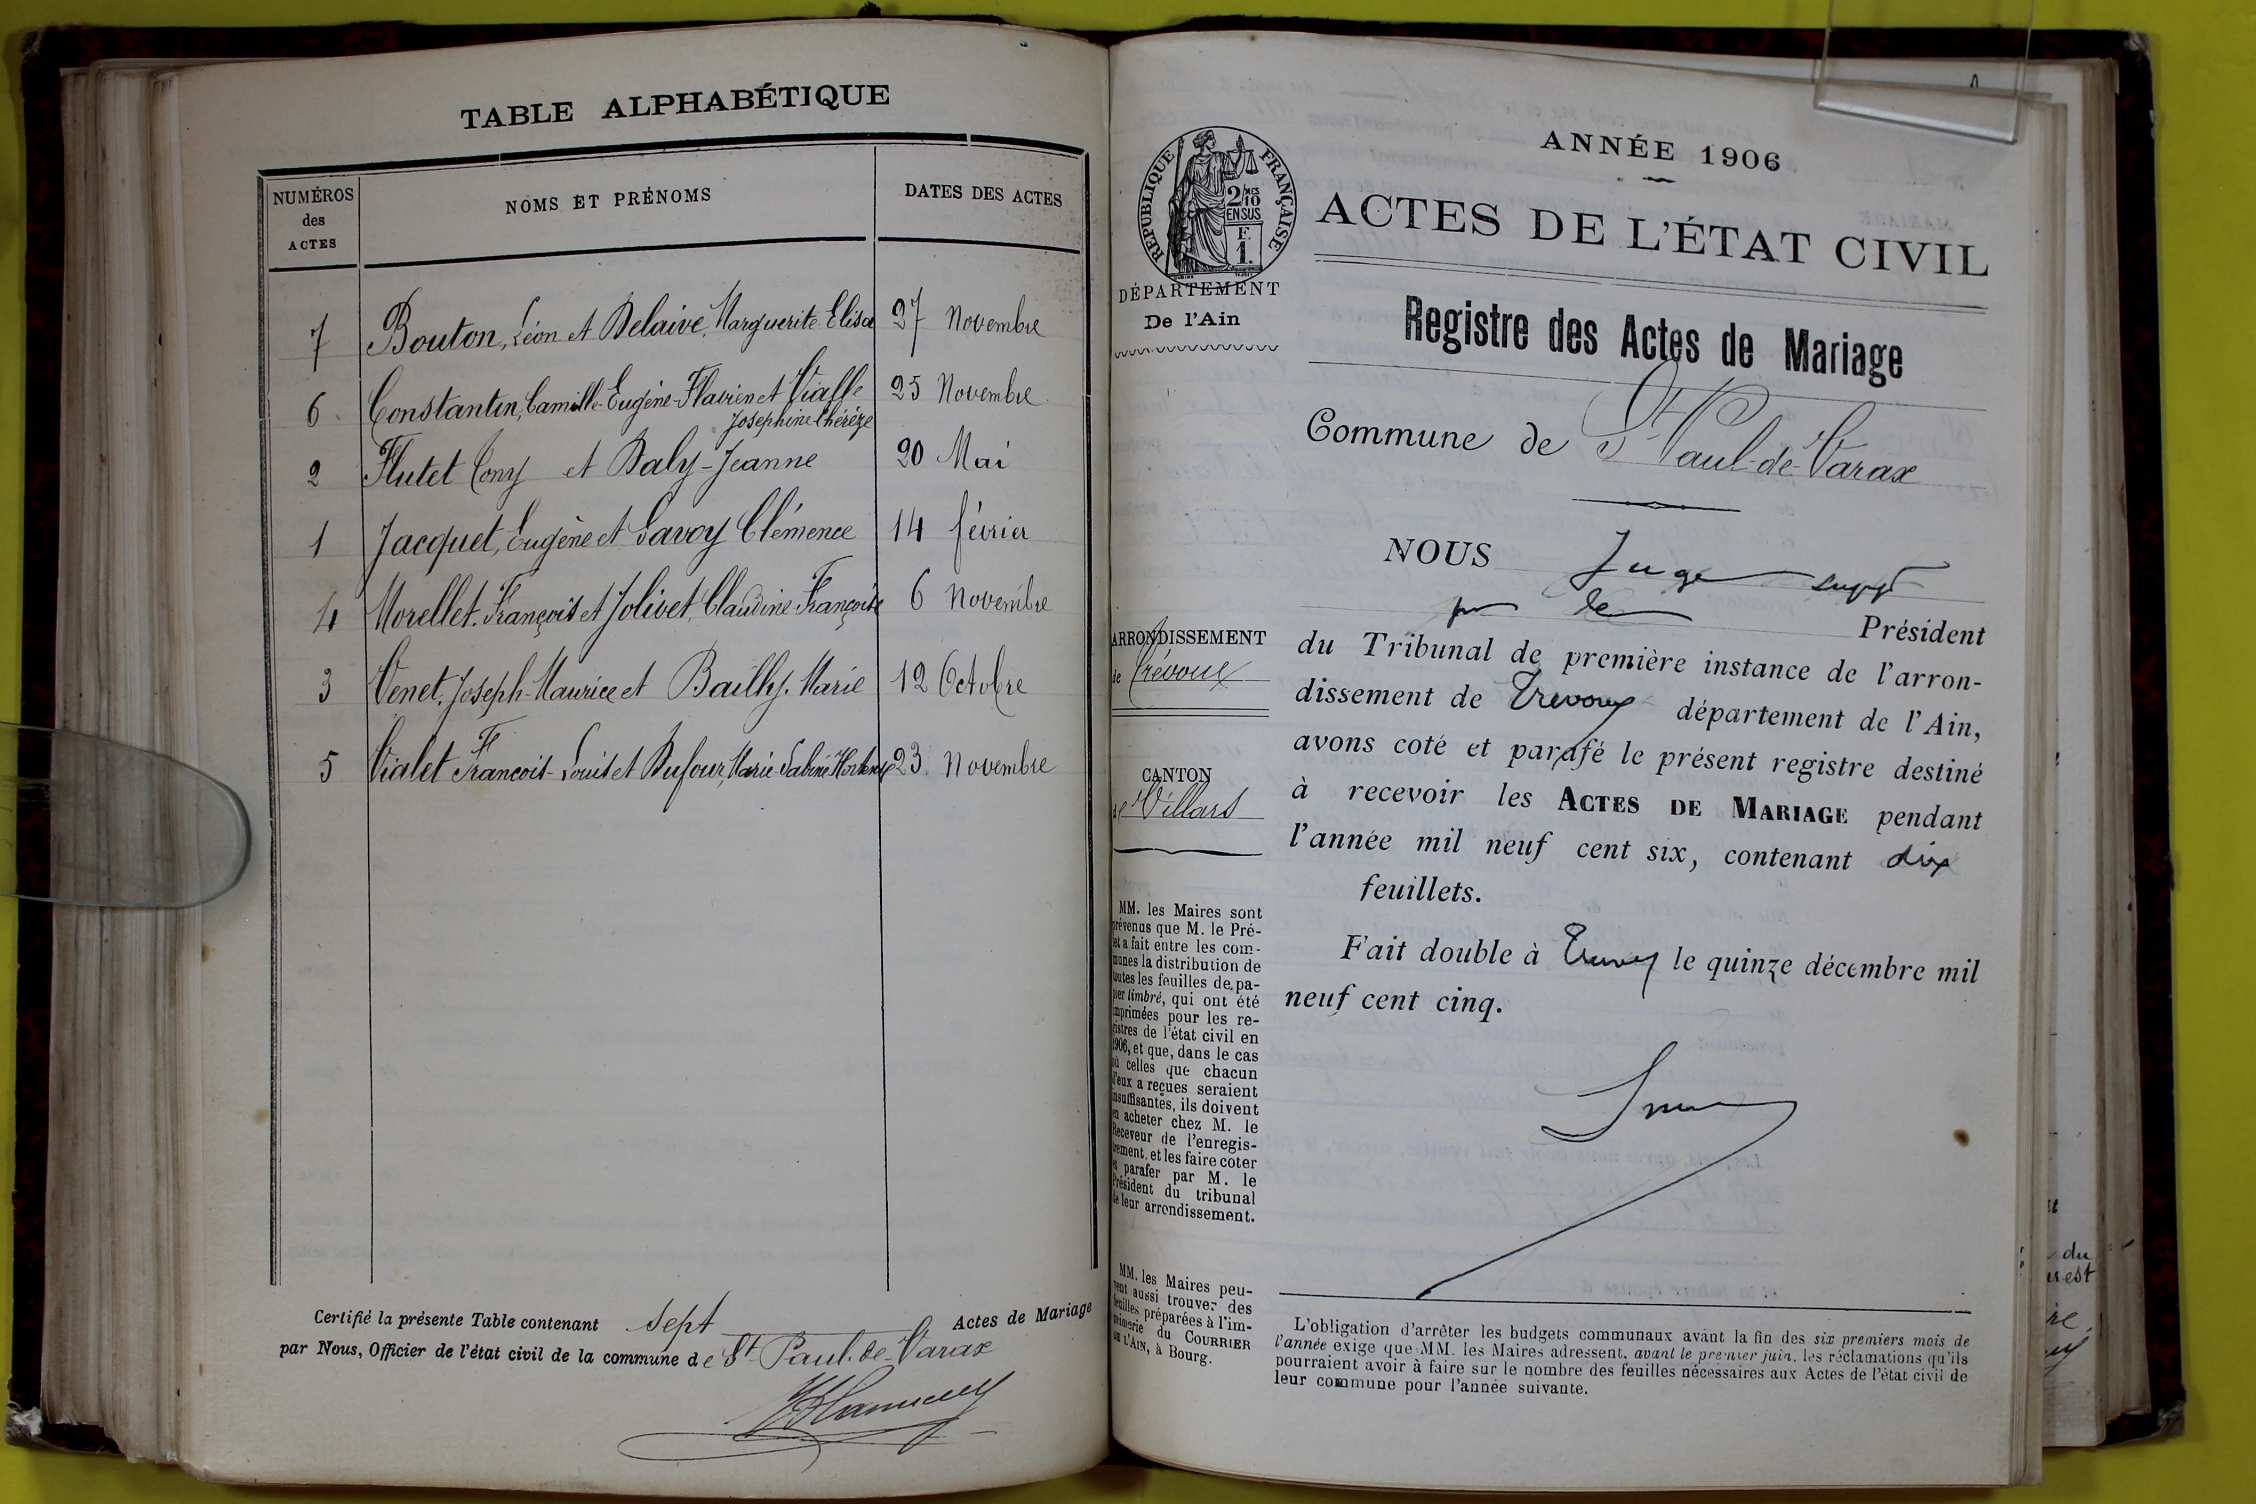 TABLE ALPHABÉTIQUE
NUMÉROS
des
ACTES
NOMS ET PRÉNOMS
DATES DES ACTES
7 Bouton, Léon et Delaive, Marguerite Elisa 27 Novembre
6 Constantin, Camille-Eugène-Flavien et Vialle 25 Novembre
Josephine Thérèze
2 Flutet Tony et Baly-Jeanne 20 Mai
1 Jacquet, Eugène et Savoy Clémence 14 février
4 Morellet. François et Jolivet, Claudine Françoise 6 Novembre
3 Venet, Joseph-Maurice et Bailly, Marie 12 Octobre
5 Vialet François-Louis et Dufour, Marie Sabine Hortense 23 Novembre
Certifié la présente Table contenant sept Actes de Mariage
par Nous, Officier de l'état civil de la commune de St Paul-de-Varax
RÉPUBLIQUE FRANÇAISE
2/10
EN SUS
F.
1.
DÉPARTEMENT
De l'Ain
ARRONDISSEMENT
de Trévoux
CANTON
de Villars
MM. les Maires sont
prévenus que M. le Pré-
fet a fait entre les com-
munes la distribution de
toutes les feuilles de pa-
pier timbré, qui ont été
imprimées pour les re-
gistres de l'état civil en
1906, et que, dans le cas
où celles que chacun
d'eux a reçues seraient
insuffisantes, ils doivent
en acheter chez M. le
Receveur de l'enregis-
trement, et les faire coter
et parafer par M. le
Président du tribunal
de leur arrondissement.
MM. les Maires peu-
vent aussi trouver des
feuilles préparées à l'im-
primerie du COURRIER
DE L'AIN, à Bourg.
ANNÉE 1906
ACTES DE L'ÉTAT CIVIL
Registre des Actes de Mariage
Commune de St Paul-de-Varax
NOUS Juge suppt
pr le Président
du Tribunal de première instance de l'arron-
dissement de Trevoux département de l'Ain,
avons coté et parafé le présent registre destiné
à recevoir les ACTES DE MARIAGE pendant
l'année mil neuf cent six, contenant dix
feuillets.
Fait double à Trevoux le quinze décembre mil
neuf cent cinq.
L'obligation d'arrêter les budgets communaux avant la fin des six premiers mois de
l'année exige que MM. les Maires adressent, avant le premier juin, les réclamations qu'ils
pourraient avoir à faire sur le nombre des feuilles nécessaires aux Actes de l'état civil de
leur commune pour l'année suivante.